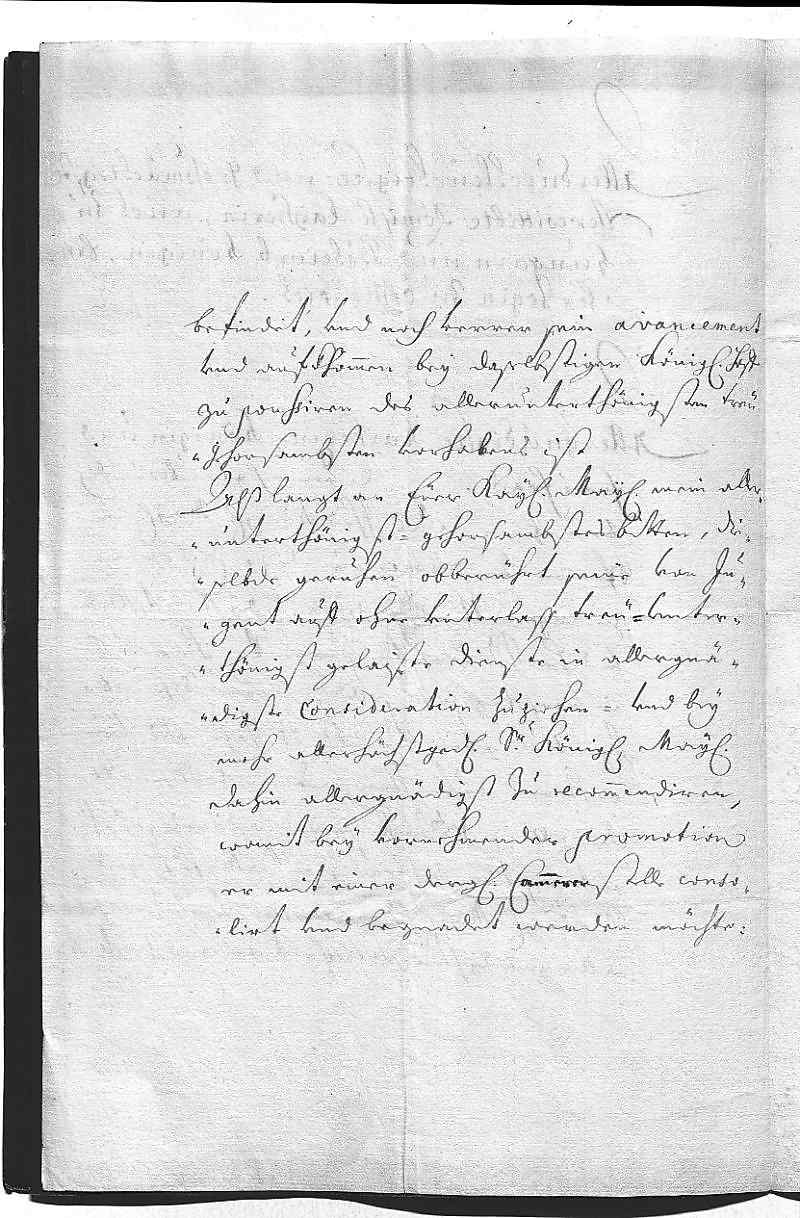 befindet, vnd noch verrer sein avancement
vnd aufkhommen bey daselbstigen Königl. Hoff
zu poussiren des allerunterthönigsten treu
gehorsambsten vorhabens ist
Alß langt an Euer Kayl. Mayl. mein aller-
unterthönigst-gehorsambstes bitten, die-
selbde geruhen obberührt seine von Ju-
gent auff ohne vnterlass treu-vnter-
thönigst gelaiste dienste in allergnä-
digste Consideration zuziehen- vnd bey
mehr allerhöchstged. Sr. Königl. Mayl.
dahin allergnädigst zu recommendiren,
womit bey vornehmender promotion
er mit einer dergl. Cammererstelle conso-
lirt vnd begnadet werden möchte: